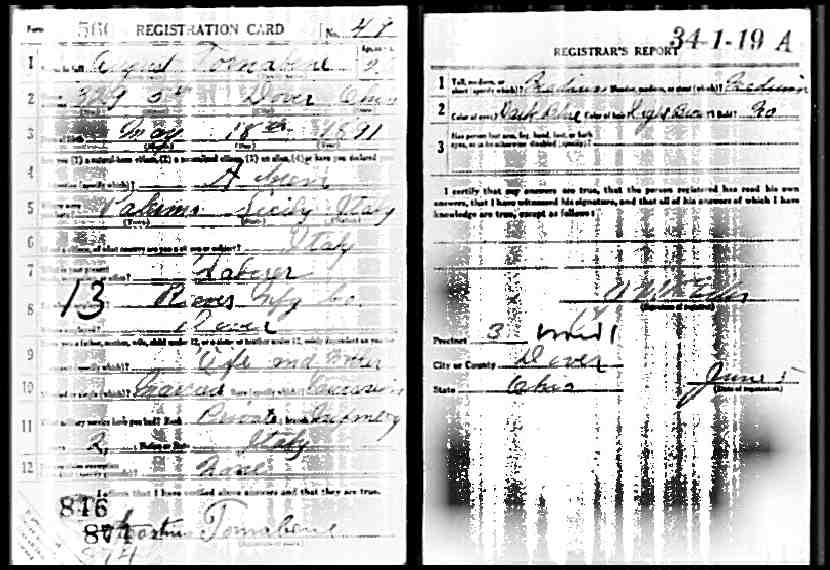 Form 560 REGISTRATION CARD No. 48
1 August Tornabene
2 329 5th Dover Ohio
3 May 18th 1891
Are you (1) a natural-born citizen, (2) a naturalized citizen, (3) an alien, (4) or have you declared your
4 (specify which)? Alien
5 Sicily Italy
(Town) (State) (Nation)
6 If not a citizen, of what country are you a citizen or subject? Italy
7 What is your present Laborer
8 13 Reeves Mfg Co
Dover
Have you a father, mother, wife, child under 12, or a sister or brother under 12, solely dependent on you for
9 (specify which)? Wife and Mother
10 Married or single (which)? Married Race (specify which)? Caucasian
11 What military service have you had? Rank Private; branch Infantry
years 2; Nation or State Italy
12 None
I affirm that I have verified above answers and that they are true.
846
874 Tornabene
874
34-1-19 A
REGISTRAR'S REPORT
1 Tall, medium, or short (specify which)? Medium Slender, medium, or stout (which)? Medium
2 Color of eyes? Dark Blue Color of hair? Light Brown Bald? No
3 Has person lost arm, leg, hand, foot, or both eyes, or is he otherwise disabled (specify)?
I certify that my answers are true, that the person registered has read his own
answers, that I have witnessed his signature, and that all of his answers of which I have
knowledge are true, except as follows:
(Signature of registrar)
Precinct 3
City or County Dover
State Ohio June 5
(Date of registration)